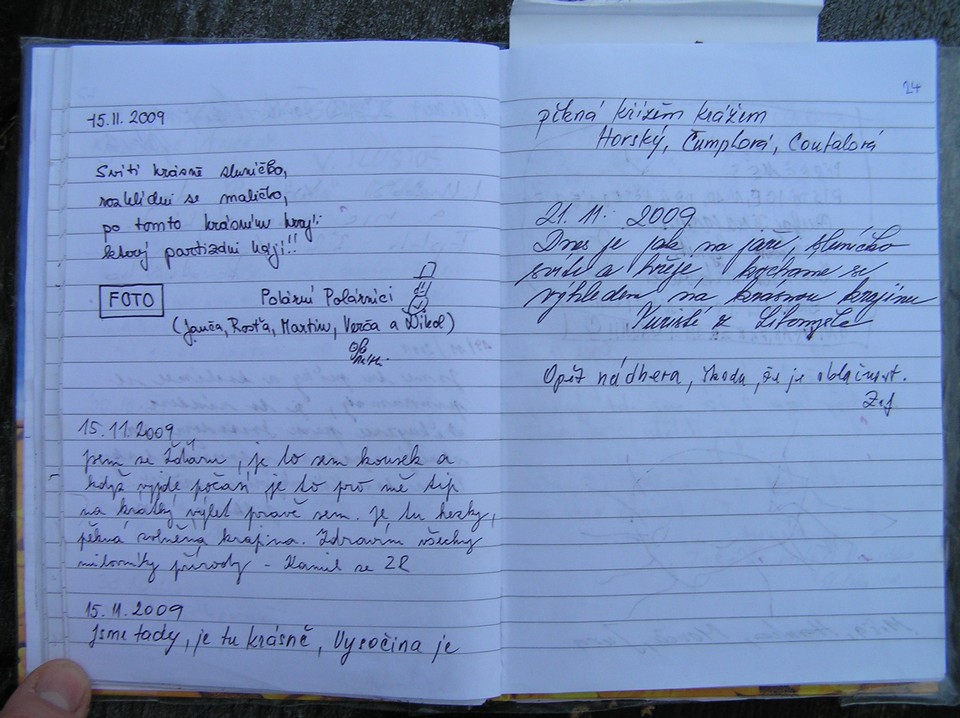 15.11.2009
Svítí krásně sluníčko,
rozhlídni se maličko,
po tomto krásném kraji
který partizáni hájí!!
FOTO
Polární Polárníci
(Janča, Rosťa, Martin, Verča a Nikol)
15.11.2009
jsem ze Žďáru, je to sem kousek a
když vyjde počasí je to pro mě tip
na krátký výlet právě sem. Je tu hezky,
pěkná zvlněná krajina. Zdravím všechny
milovníky přírody - Kamil ze ZR
15.11.2009
Jsme tady, je tu krásně, Vysočina je
24
pěkná křížem krážem
Horský, Čumplová, Coufalová
21. 11. 2009
Dnes je jak na jaře, sluníčko
svítí a hřeje, kocháme se
výhledem na krásnou krajinu
Turisté z Litomyšle
Opět nádhera, škoda, že je oblačnost.